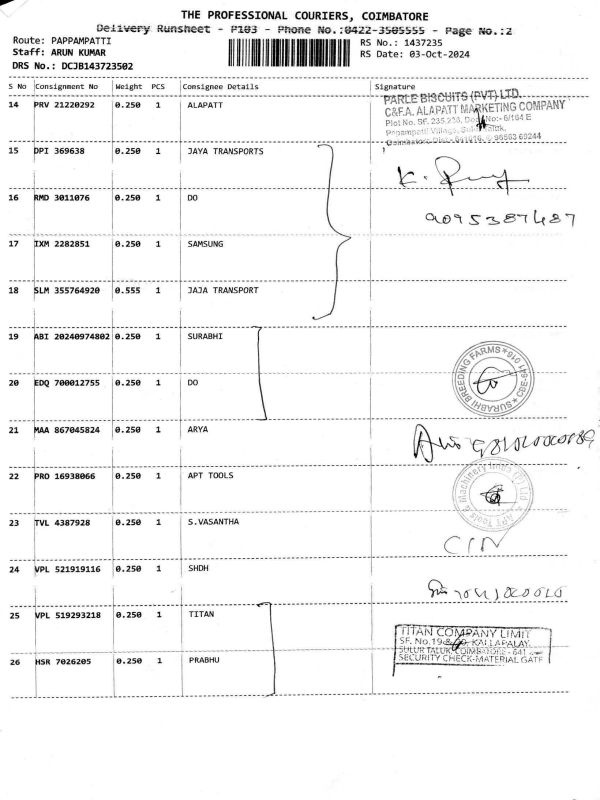 THE PROFESSIONAL COURIERS, COIMBATORE
Delivery Runsheet - P103 - Phone No.:0422-3505555 - Page No.:2
Route: PAPPAMPATTI
Staff: ARUN KUMAR
DRS No.: DCJB143723502
RS No.: 1437235
RS Date: 03-Oct-2024
S No Consignment No Weight PCS Consignee Details Signature
14 PRV 21220292 0.250 1 ALAPATT
PARLE BISCUITS (PVT) LTD.
C&F.A. ALAPATT MARKETING COMPANY
15 DPI 369638 0.250 1 JAYA TRANSPORTS
16 RMD 3011076 0.250 1 DO
9095387487
17 IXM 2282851 0.250 1 SAMSUNG
18 SLM 355764920 0.555 1 JAJA TRANSPORT
19 ABI 20240974802 0.250 1 SURABHI
SURABHI BREEDING FARMS
20 EDQ 700012755 0.250 1 DO
21 MAA 867045824 0.250 1 ARYA
22 PRO 16938066 0.250 1 APT TOOLS
APT Tools & Machinery India (P) Ltd
23 TVL 4387928 0.250 1 S.VASANTHA
24 VPL 521919116 0.250 1 SHDH
25 VPL 519293218 0.250 1 TITAN
TITAN COMPANY LIMIT
SULUR TALUK, COIMBATORE - 641
SECURITY CHECK-MATERIAL GATE
26 HSR 7026205 0.250 1 PRABHU